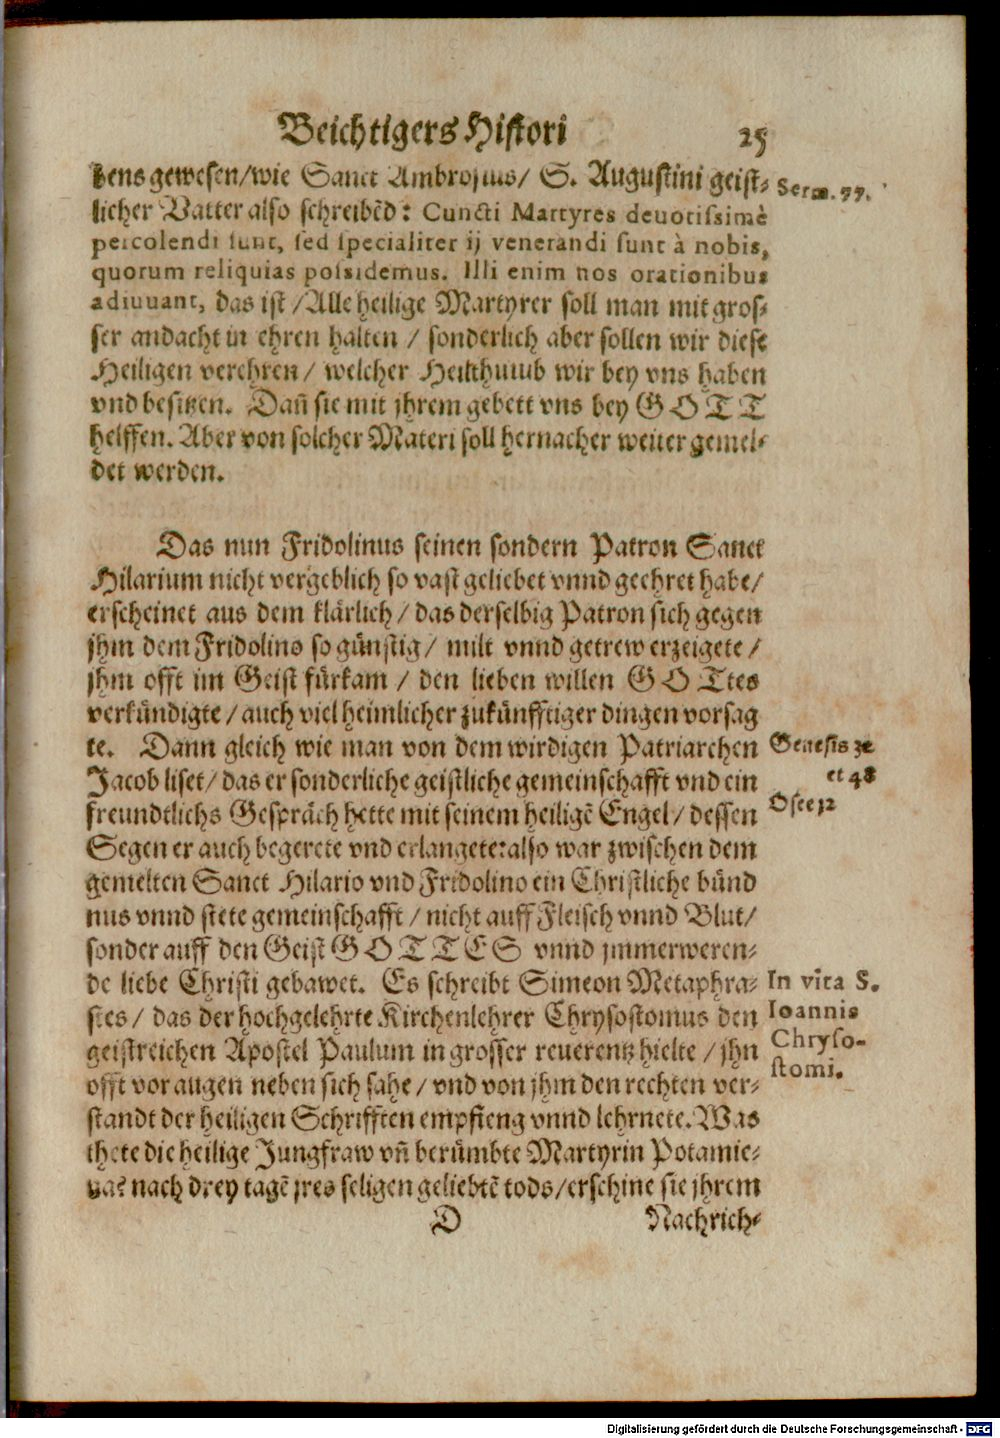 Beichtigers Histori 25
bens gewesen/wie Sanct Ambrosius/ S. Augustini geist-
Serm. 77.
licher Vatter also schreibēd: Cuncti Martyres deuotissimè
percolendi sunt, sed specialiter ij venerandi sunt à nobis,
quorum reliquias possidemus. Illi enim nos orationibus
adiuuant, das ist/Alle heilige Martyrer soll man mit gros-
ser andacht in ehren halten / sonderlich aber sollen wir diese
Heiligen verehren/ welcher Heilthumb wir bey vns haben
vnd besitzen. Dañ sie mit jhrem gebett vns bey GOTT
helffen. Aber von solcher Materi soll hernacher weiter gemel-
det werden.
Das nun Fridolinus seinen sondern Patron Sanct
Hilarium nicht vergeblich so vast geliebet vnnd geehret habe/
erscheinet aus dem klärlich/das derselbig Patron sich gegen
jhm dem Fridolino so günstig/ milt vnnd getrew erzeigete/
jhm offt im Geist fürkam / den lieben willen GOTtes
verkündigte/auch viel heimlicher zukünfftiger dingen vorsag
te. Dann gleich wie man von dem wirdigen Patriarchen
Genesis 32
Jacob liset/das er sonderliche geistliche gemeinschafft vnd ein
et 48
freundtlichs Gespräch hette mit seinem heiligē Engel/dessen
Osee 12
Segen er auch begerete vnd erlangete:also war zwischen dem
gemelten Sanct Hilario vnd Fridolino ein Christliche bünd
nus vnnd stete gemeinschafft/nicht auff Fleisch vnnd Blut/
sonder auff den Geist GOTTES vnnd jmmerweren-
de liebe Christi gebawet. Es schreibt Simeon Metaphra-
In vita S.
stes/ das der hochgelehrte Kirchenlehrer Chrysostomus den
Ioannis
geistreichen Apostel Paulum in grosser reuerentz hielte/jhn
Chryso-
offt vor augen neben sich sahe/vnd von jhm den rechten ver-
stomi.
standt der heiligen Schrifften empfieng vnnd lehrnete. Was
thete die heilige Jungfraw vñ berümbte Martyrin Potamie-
na? nach drey tagē jres seligen geliebtē tods/erschine sie jhrem
D Nachrich-
Digitalisierung gefördert durch die Deutsche Forschungsgemeinschaft - DFG